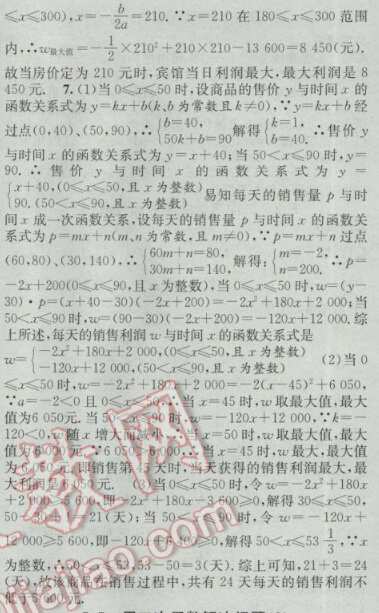 ≤x≤300),x=-b/2a=210.∵x=210 在 180≤x≤300 范围
内,∴w最大值=-1/2×210²+210×210-13 600=8 450(元).
故当房价定为 210 元时,宾馆当日利润最大,最大利润是 8
450 元. 7.(1)当 0≤x≤50 时,设商品的售价 y 与时间 x 的
函数关系式为 y=kx+b(k、b 为常数且 k≠0),∵y=kx+b 经
过点(0,40)、(50,90),∴{b=40, 50k+b=90 解得{k=1, b=40. ∴售价 y
与时间 x 的函数关系式为 y=x+40;当 50<x≤90 时,y=
90.∴售价 y 与时间 x 的函数关系式为 y=
{x+40,(0≤x≤50,且 x 为整数) 90.(50<x≤90,且 x 为整数) 易知每天的销售量 p 与时
间 x 成一次函数关系,设每天的销售量 p 与时间 x 的函数关
系式为 p=mx+n(m、n 为常数,且 m≠0),∵p=mx+n 过点
(60,80)、(30,140),∴{60m+n=80, 30m+n=140, 解得:{m=-2, n=200. ∴p=
-2x+200(0≤x≤90,且 x 为整数),当 0≤x≤50 时,w=(y-
30)·p=(x+40-30)(-2x+200)=-2x²+180x+2 000;当
50<x≤90 时,w=(90-30)(-2x+200)=-120x+12 000.综
上所述,每天的销售利润 w 与时间 x 的函数关系式是
w={-2x²+180x+2 000,(0≤x≤50,且 x 为整数) -120x+12 000,(50<x≤90,且 x 为整数) (2)当 0
≤x≤50 时,w=-2x²+180x+2 000=-2(x-45)²+6 050,
∵a=-2<0 且 0≤x≤50,∴当 x=45 时,w 取最大值,最大
值为 6 050 元.当 50<x≤90 时,w=-120x+12 000,∵k=-
120<0,w 随 x 增大而减小,∴x=50 时,w 取最大值,最大
值为 6 000 元.∵6 050>6 000,∴当 x=45 时,w 最大,最大值
为 6 050 元.即销售第 45 天时,当天获得的销售利润最大,最
大利润是 6 050 元. (3)当 0≤x≤50 时,令 w=-2x²+180x
+2 000≥5 600,即-2x²+180x-3 600≥0,解得 30≤x≤50,
50-30+1=21(天);当 50<x≤90 时,令 w=-120x+
12 000≥5 600,即-120x+6 400≥0,解得 50<x≤53 1/3,∵x
为整数,∴50<x≤53,53-50=3(天).综上可知,21+3=24
(天),故该商品在销售过程中,共有 24 天每天的销售利润不
低于 5 600 元.